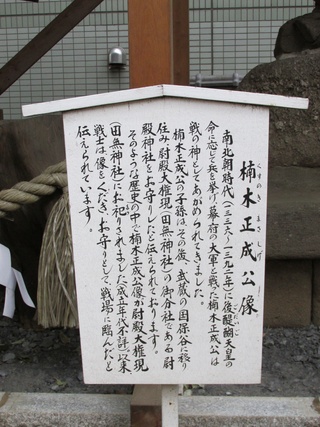 楠木正成公像
くすのき まさしげ
南北朝時代(一三三六~一三九二年)に後醍醐天皇の
ごだいご
命に応じ兵を挙げ、幕府の大軍と戦った楠木正成公は
戦の神としてあがめられてきました。
楠木正成公の子孫は、その後、武蔵の国保谷に移り
住み尉殿大権現(田無神社)の御分社である尉
殿神社をお守りしたと伝えられております。
そのような歴史の中で楠木正成公像が尉殿大権現
(田無神社)にお祀りされました(成立年代不詳)。以来、
戦士は像をくだき、お守りとして、戦場に臨んだと
伝えられています。